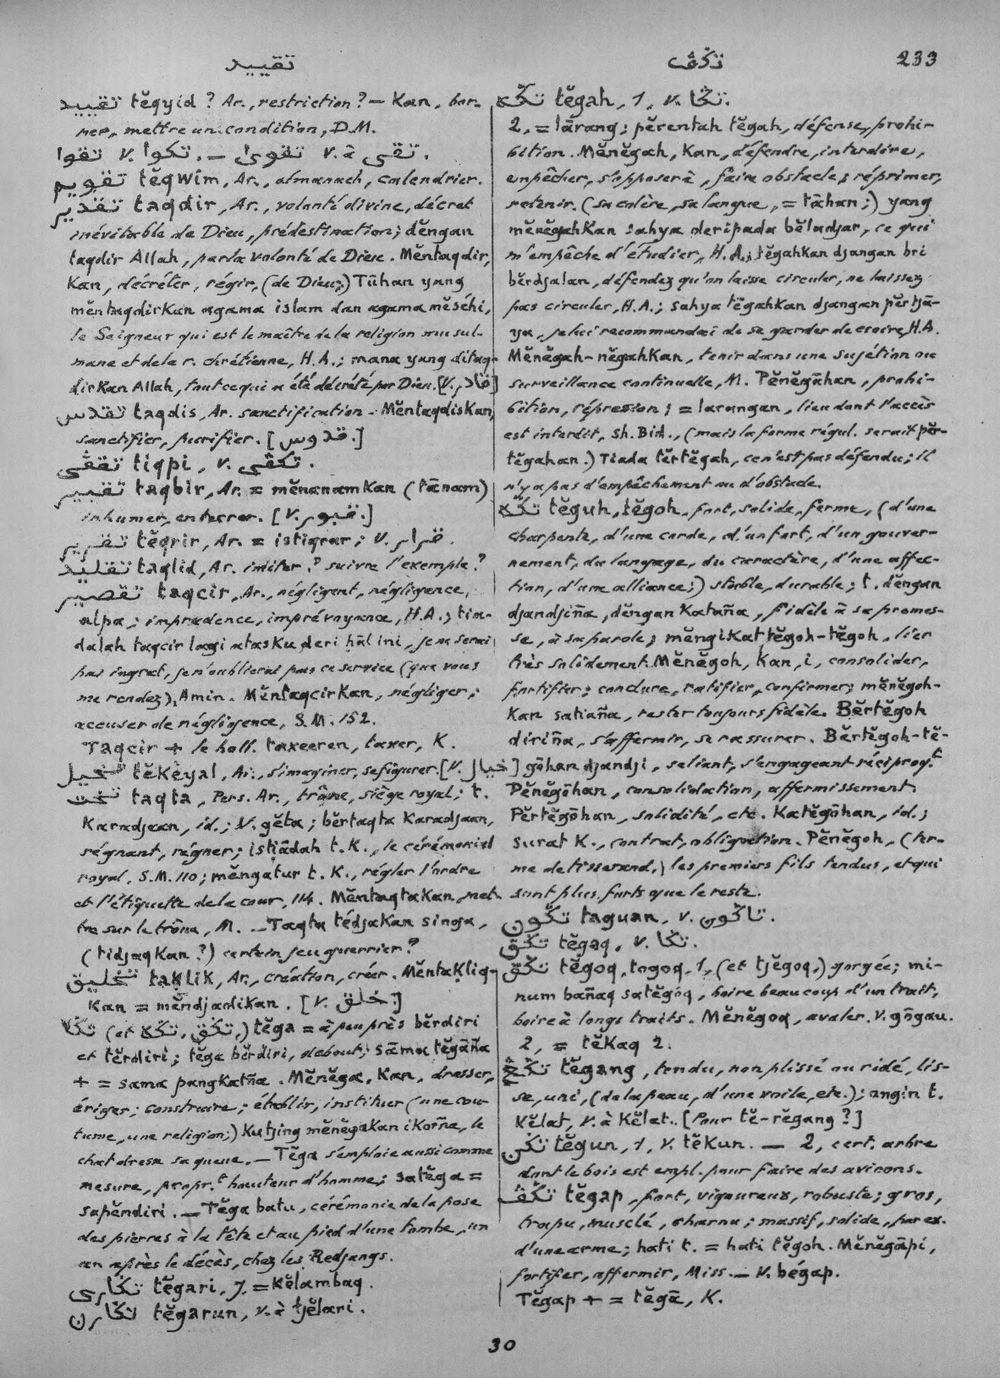 تقييد
تڬڤ
233
تقييد tĕqyid ? Ar., restriction ? — Kan, bor-
ner, mettre un condition, D.M.
تقوا v. تكوا. — تقوى v. à تقى.
تقويم tĕqwīm, Ar., almanach, calendrier.
تقدير taqdir, Ar., volonté divine, décret
inévitable de Dieu, prédestination; dĕngan
taqdir Allah, par la volonté de Dieu. Mĕntaqdir,
Kan, décréter, régir, (de Dieu;) Tūhan yang
mĕntaqdirkan agama islam dan agama mĕsĕhi,
le Seigneur qui est le maître de la religion musul-
mane et de la r. chrétienne, H.A.; mana yang ditaq-
dirkan Allah, tout ce qui a été décrété par Dieu. [v. قادر]
تقدس taqdis, Ar. sanctification. Mĕntaqdiskan,
sanctifier, purifier. [قدوس.]
تقڤى tiqpi, v. تكڤى.
تقبير taqbir, Ar. = mĕnanamkan (tānam)
inhumer, enterrer. [v. قبور.]
تقرير tĕqrir, Ar. = istiqrar; v. قرار.
تقليد taqlid, Ar. imiter ? suivre l'exemple ?
تقصير taqcir, Ar., négligent, négligence,
alpa; imprudence, imprévoyance, H.A.; tia-
dalah taqcir lagi atasku deri hāl ini, je ne serai
pas ingrat, je n'oublierai pas ce service (que vous
me rendez), Amin. Mĕntaqcirkan, négliger;
accuser de négligence, S.M. 152.
Taqcir + le holl. taxeeren, taxer, K.
تخييل tĕkĕyal, Ar., s'imaginer, se figurer. [v. خيال]
تخت taqta, Pers. Ar., trône, siège royal; t.
Karadjaan, id.; v. gĕta; bĕrtaqta Karadjaan,
régnant, régner; istiādah t. K., le cérémonial
royal, S.M. 110; mĕngatur t. K., régler l'ordre
et l'étiquette de la cour, 114. Mĕntaqtakan, met-
tre sur le trône, M. — Taqta tĕdjakan singa,
(tidjaqkan ?) certain jeu guerrier ?
تخليق taklik, Ar., création, créer. Mĕntakliq-
kan = mĕndjadikan. [v. خلق]
تڬا (et تڬق, تڬه,) tĕga = à peu près bĕrdiri
et tĕrdiri; tĕga bĕrdiri, debout; sāma tĕgāña
+ = sama pangkatña. Mĕnĕga, Kan, dresser,
ériger; construire; établir, instituer (une cou-
tume, une religion;) Kutjing mĕnĕgakan iKorña, le
chat dressa sa queue. — Tĕga s'emploie aussi comme
mesure, propr.t hauteur d'homme; satĕga =
sapĕndiri. — Tĕga batu, cérémonie de la pose
des pierres à la tête et au pied d'une tombe, un
an après le décès, chez les Redjangs.
تڬارى tĕgari, J. = Kĕlambaq.
تڬارن tĕgarun, v. à tjĕlari.
تڬه tĕgah, 1, v. تڬا.
2, = lārang; pĕrentah tĕgah, défense, prohi-
bition. Mĕnĕgah, Kan, défendre, interdire,
empêcher, s'opposer à, faire obstacle; réprimer,
retenir. (sa colère, sa langue, = tāhan;) yang
mĕnĕgahKan sahya deripada bĕladjar, ce qui
m'empêche d'étudier, H.A.; tĕgahkan djangan bri
bĕrdjalan, défendez qu'on laisse circuler, ne laissez
pas circuler, H.A.; sahya tĕgahkan djangan pĕrtjā-
ya, je lui recommandai de se garder de croire, H.A.
Mĕnĕgah-nĕgahkan, tenir dans une sujétion ou
surveillance continuelle, M. Pĕnĕgāhan, prohi-
bition, répression; = larangan, lieu dont l'accès
est interdit, Sh. Bid., (mais la forme régul. serait pĕr-
tĕgahan.) Tiada tĕrtĕgah, ce n'est pas défendu; il
n'y a pas d'empêchement ou d'obstacle.
تڬه tĕguh, tĕgoh, fort, solide, ferme, (d'une
charpente, d'une corde, d'un fort, d'un gouver-
nement, du langage, du caractère, d'une affec-
tion, d'une alliance;) stable, durable; t. dĕngan
djandjiña, dĕngan Kataña, fidèle à sa promes-
se, à sa parole; mĕngikat tĕgoh-tĕgoh, lier
très solidement. Mĕnĕgoh, Kan, i, consolider,
fortifier; conclure, ratifier, confirmer; mĕnĕgoh-
Kan satiaña, rester toujours fidèle. Bĕrtĕgoh
diriña, s'affermir, se rassurer. Bĕrtĕgoh-tĕ-
gōhan djandji, se liant, s'engageant réciproq.t
Pĕnĕgōhan, consolidation, affermissement.
Pĕrtĕgōhan, solidité, etc. Katĕgōhan, id.;
surat K., contrat, obligation. Pĕnĕgoh, (ter-
me de tisserand,) les premiers fils tendus, et qui
sont plus forts que le reste.
تڬون taguan, v. تاڬون.
تڬق tĕgaq, v. تڬا.
تڬق tĕgoq, togoq, 1, (et tjĕgoq,) gorgée; mi-
num bañaq satĕgoq, boire beaucoup d'un trait,
boire à longs traits. Mĕnĕgoq, avaler. v. gōgau.
2, = tĕkaq 2.
تڬڠ tĕgang, tendu, non plissé ou ridé, lis-
se, uni, (de la peau, d'une voile, etc.); angin t.
Kĕlat, v. à Kĕlat. [Pour tĕ-rĕgang ?]
تڬن tĕgun, 1, v. tĕkun. — 2, cert. arbre
dont le bois est empl. pour faire des avirons.
تڬڤ tĕgap, fort, vigoureux, robuste; gros,
trapu, musclé, charnu; massif, solide, par ex.
d'une arme; hati t. = hati tĕgoh. Mĕnĕgāpi,
fortifier, affermir, Miss. — v. bégap.
Tĕgap + = tĕgā, K.
30